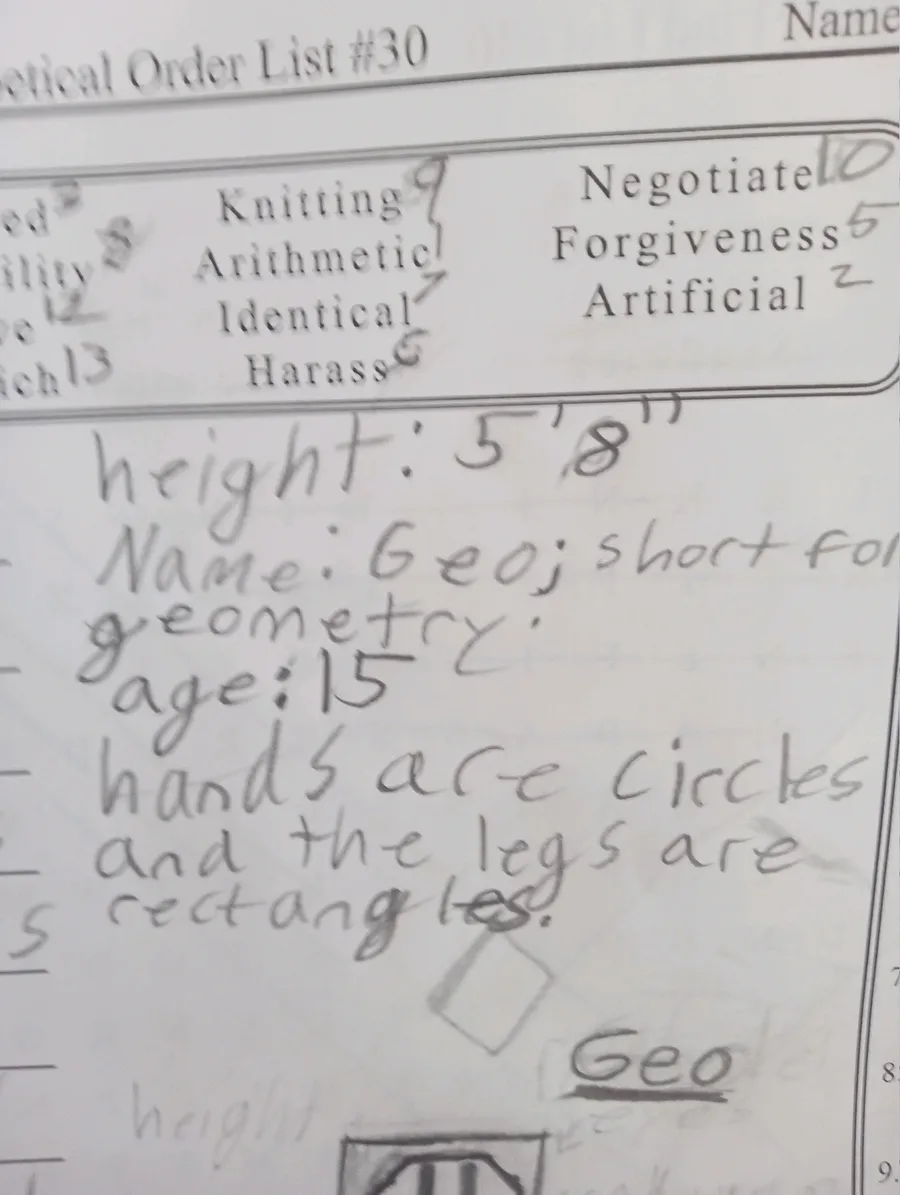 etical Order List #30
Name
ed
Knitting 9
Negotiate 10
ility 8
Arithmetic 1
Forgiveness 5
12
Identical 7
Artificial 2
ich 13
Harass 6
height: 5'8"
Name: Geo; short for
geometry.
age: 15
hands are circles
and the legs are
s rectangles.
Geo
8.
height
9.